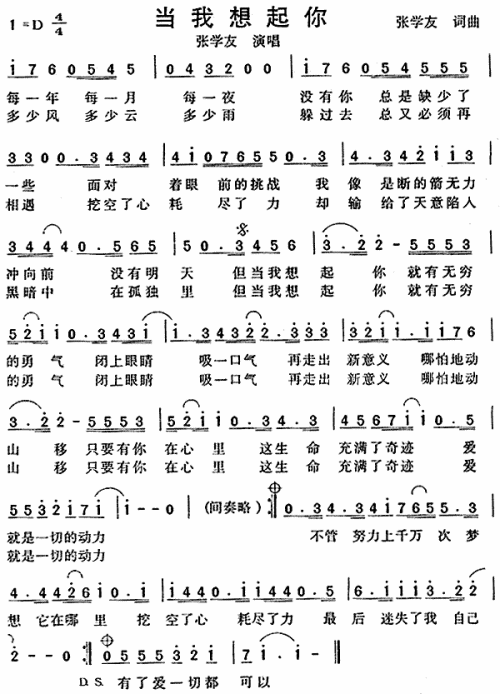 当我想起你
1=D 4/4
张学友 词曲
张学友 演唱
i 7 6 0 5 4 5 | 0 4 3 2 0 0 | i 7 6 0 5 4 5 5 5
每一年 每一月 每一夜 没有你 总是缺少了
多少风 多少云 多少雨 躲过去 总又必须再
3 3 0 0. 3 4 3 4 | 4 1 0 7 6 5 5 0. 3 | 4. 3 4 2 i i 3
一些 面对 着眼 前的挑战 我 像 是断的箭无力
相遇 挖空了心 耗 尽了力 却 输 给了天意陷人
3 4 4 4 0. 5 6 5 | 5 0. 3 4 5 6 | 3. 2 2 - 5 5 5 3
冲向前 没有明 天 但当我想 起 你 就有无穷
黑暗中 在孤独 里 但当我想 起 你 就有无穷
5 2 i i 0. 3 4 3 i | i. 3 4 3 2 2. 3 3 3 | 3 2 i i. i i 7 6
的勇 气 闭上眼睛 吸一口气 再走出 新意义 哪怕地动
的勇 气 闭上眼睛 吸一口气 再走出 新意义 哪怕地动
3. 2 2 - 5 5 5 3 | 5 2 i i 0. 3 4. 3 | 4 5 6 7 i i 0. 5
山 移 只要有你 在心 里 这生 命 充满了奇迹 爱
山 移 只要有你 在心 里 这生 命 充满了奇迹 爱
5 5 3 2 i 7 i | i - - 0 (间奏略) :| 0. 3 4. 3 4 i 7 6 5 5. 3
就是一切的动力 不管 努力上千万 次 梦
就是一切的动力
4. 4 4 2 6 i 0. i | i 4 4 0. i i 4 4 0. i | 6. i i i 3. 2 2
想 它在哪 里 挖 空了心 耗尽了力 最 后 迷失了我 自己
2 - - 0 :| 0 5 5 5 3 2 i | 7 i. i - |
D.S. 有了爱一切都 可以